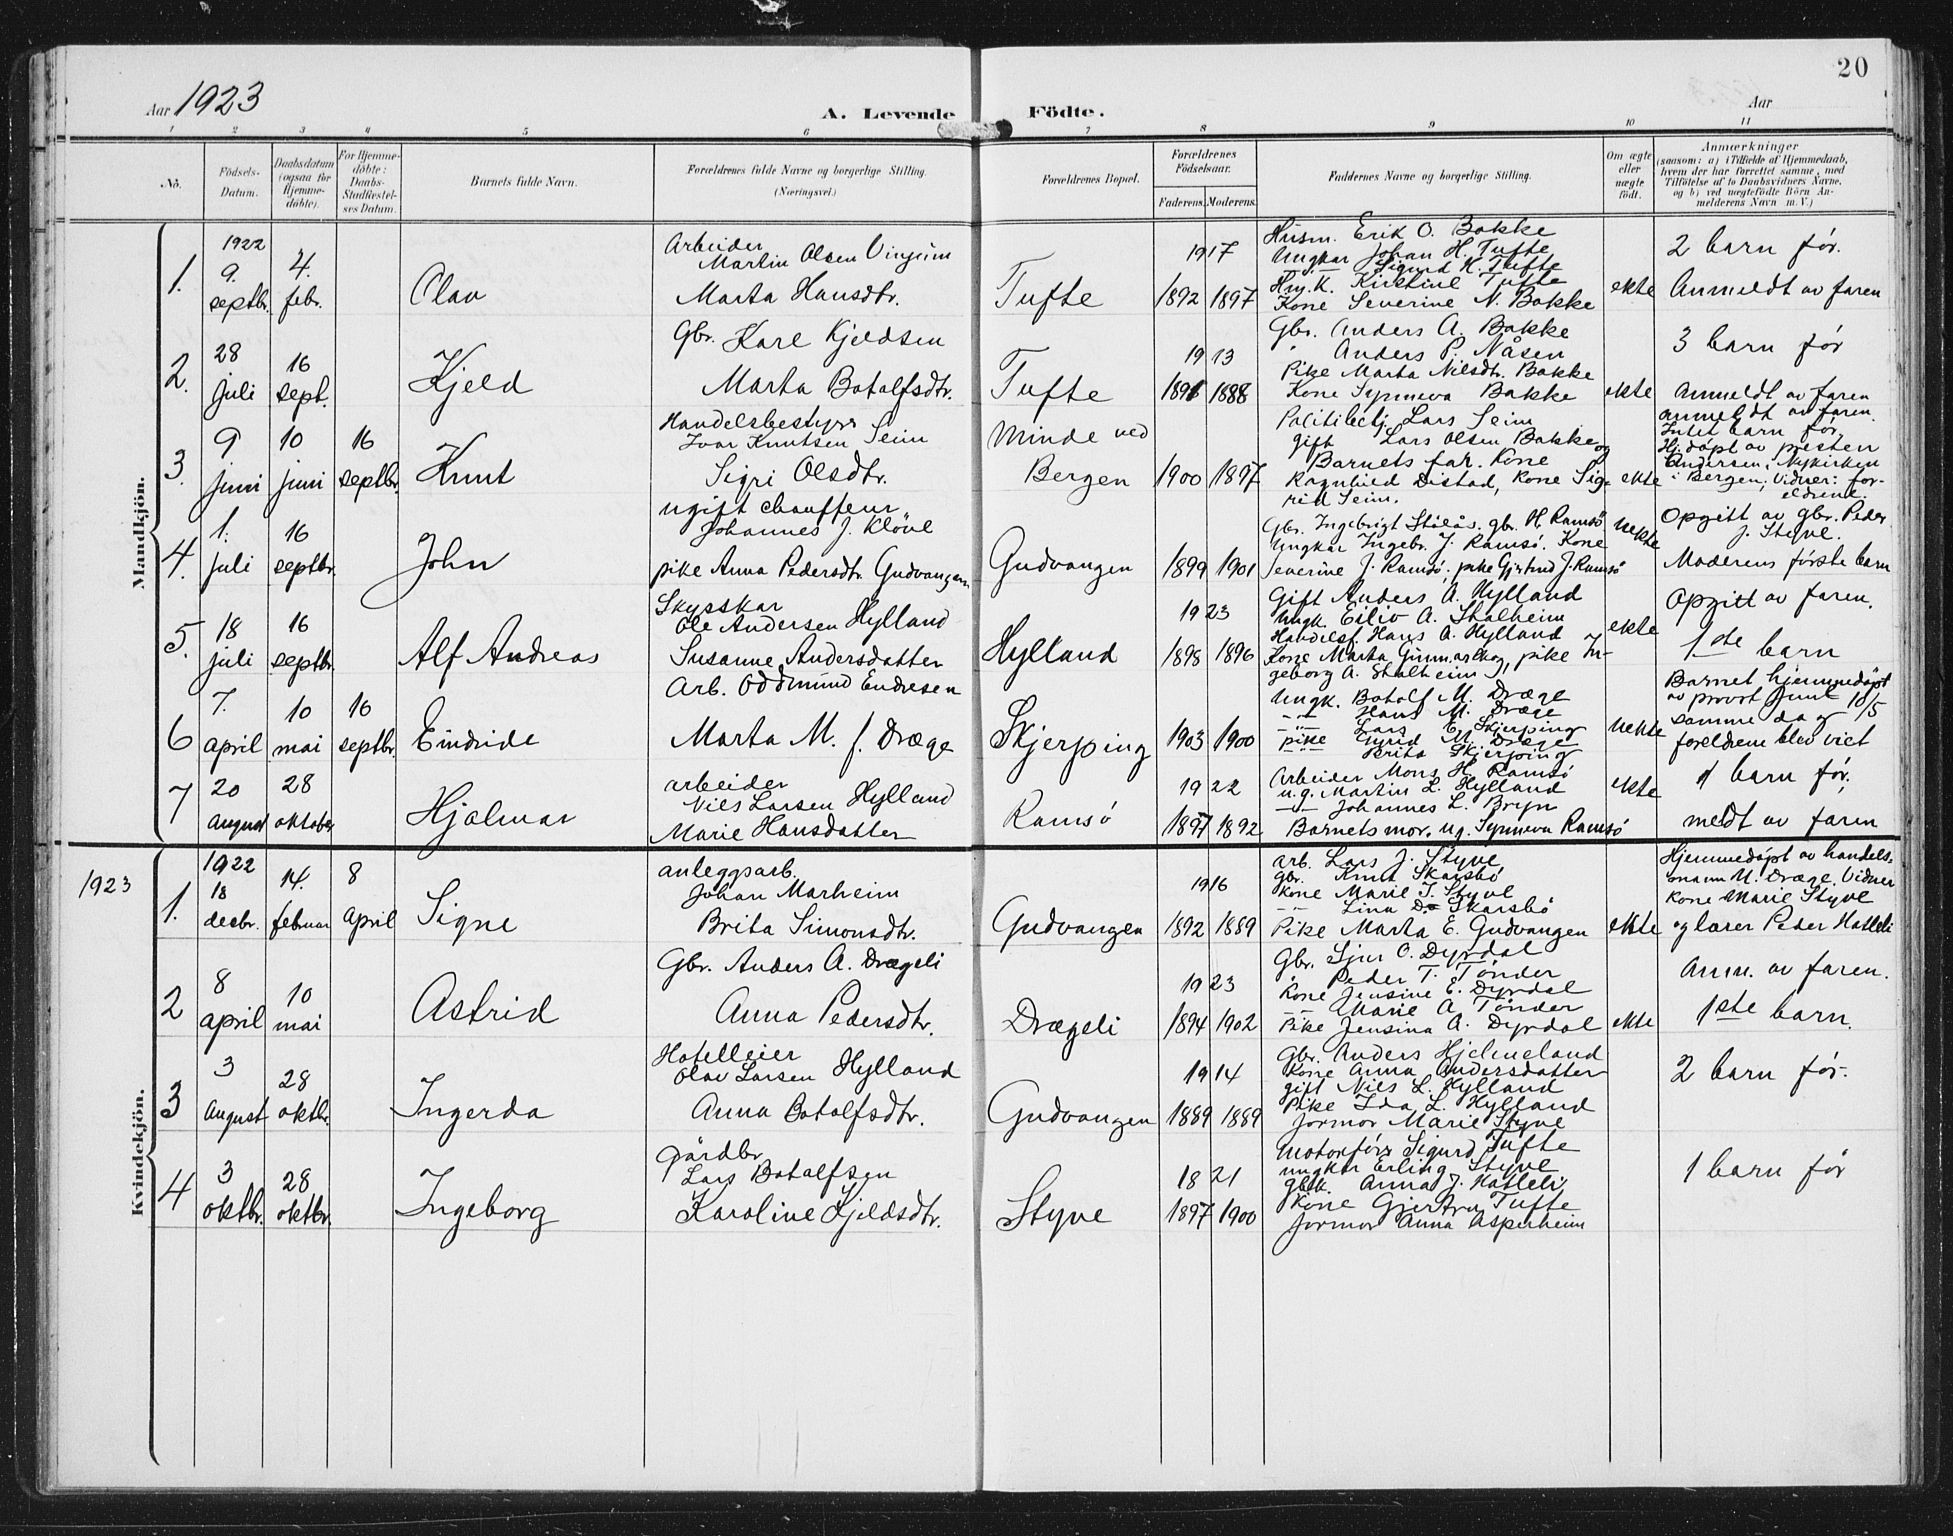 20
Aar 1923
A. Levende Födte.
Aar
1 2 3 4 5 6 7 8 9 10 11
No.
Födsels-Datum.
Daabsdatum (ogsaa for Hjemme-döbte).
For Hjemme-döbte: Daabs-Stadfæstel-ses Datum.
Barnets fulde Navn.
Forældrenes fulde Navne og borgerlige Stilling.
(Næringsvei.)
Forældrenes Bopæl.
Forældrenes Födselsaar.
Faderens. Moderens.
Faddernes Navne og borgerlige Stilling.
Om ægte eller uægte födt.
Anmærkninger
(saasom: a) i Tilfælde af Hjemmedaab,
hvem der har forrettet samme, med
Tilföielse af to Daabsvidners Navne,
og b) ved uægtefödte Börn An-
melderens Navn m. V.)
Mandkjön.
1.
1922
9.
septbr.
4.
febr.
Olav
Arbeider
Martin Olsen Vinjum
Marta Hansdtr.
Tufte
1917
1892 1897
Husm. Erik O. Bakke
Ungkar Johan H. Tufte
Sigurd H. Tufte
Kirstine Tufte
Kone Severine N. Bakke
ekte
2 barn før.
Anmeldt av faren
2.
28
juli
16
sept.
Kjeld
Gbr. Karl Kjeldsen
Marta Botolfsdtr.
Tufte
1913
1891 1888
Gbr. Anders A. Bakke
Anders P. Nåsen
Pike Marta Nilsdtr. Bakke
Kone Synneva Bakke
ekte
3 barn før
Anmeldt av faren
3.
9
juni
10
juni
16
septbr.
Knut
Handelsbestyrer
Ivar Knutsen Seim
Sigri Olsdtr.
Minde ved
Bergen
1900 1897
Politibetj. Lars Seim
gift Lars Olsen Bakke og
Barnets far. Kone
Ragnhild Distad, Kone Sig-
rid Seim.
ekte
anmeldt av faren.
Intet barn før,
Hj.døpt av presten
Andersen i Nykirken
i Bergen; Vidner: for-
eldrene.
4.
1.
juli
16
septbr.
John
ugift chauffeur
Johannes J. Kløve
pike Anna Pedersdtr. Gudvangen
Gudvangen
1899 1901
Gbr. Ingebrigt Stålås. gbr. H. Ramsø
Ungkar Ingebr. J. Ramsø. Kone
Severine J. Ramsø, pike Gjertrud J. Ramsø
uekte
Opgitt av gbr. Peder
J. Styve.
Moderens første barn
5.
18
juli
16
septbr.
Alf Andreas
Skysskar
Ole Andersen Hylland
Susanne Andersdatter
Hylland
1923
1898 1896
Gift Anders A. Hylland
Ungk. Eiliv A. Stalheim
Handelsf. Hans A. Hylland
Kone Marta Gunnarskog, pike In-
geborg A. Stalheim
ekte
Opgitt av faren.
1ste barn
6
7.
april
10
mai
16
septbr.
Eindride
Arb. Oddmund Endresen
Marta M. f. Dræge
Skjerping
1903 1900
Ungk. Botolf M. Dræge
-"- Hans M. Dræge
-"- Lars E. Skjerping
pike Gurid M. Dræge
Brita Skjerping
uekte
Barnet hjemmedøpt
av provst Juul 10/5
samme dag
foreldrene blev viet
7
20
august
28
oktober
Hjalmar
arbeider
Nils Larsen Hylland
Marie Hansdatter
Ramsø
1922
1897 1892
Arbeider Mons H. Ramsø
u.g. Martin L. Hylland
-"- Johannes L. Bryn
Barnets mor. ug. Synneva Ramsø
ekte
1 barn før,
meldt av faren
Kvindekjön.
1923
1.
1922
18
desbr.
14.
februar
8
april
Signe
anleggsarb.
Johan Marheim
Brita Simonsdtr.
Gudvangen
1916
1892 1889
arb. Lars J. Styve
gbr. Knut Skarsbø
Kone Marie J. Styve
-"- Lina D. Skarsbø
Pike Marta E. Gudvangen
ekte
Hjemmedøpt av handels-
mann M. Dræge. Vidner
Kone Marie Styve
og lærer Peder Hatleli
2
8
april
10
mai
Astrid
Gbr. Anders A. Drægeli
Anna Pedersdtr.
Drægeli
1923
1894 1902
Gbr. Sjur O. Dyrdal
Peder T. Tønder
Kone Jensine E. Dyrdal
-"- Marie A. Tønder
Pike Jensina A. Dyrdal
ekte
Anm. av faren.
1ste barn.
3
3
august
28
oktbr.
Ingerda
Hotelleier
Olav Larsen Hylland
Anna Botolfsdtr.
Gudvangen
1914
1889 1889
Gbr. Anders Hjelmeland
Kone Anna Andersdatter
gift Nils L. Hylland
Pike Ida L. Hylland
Jormor Marie Styve
2 barn før.
4
3
oktbr.
28
oktbr.
Ingeborg
gårdbr.
Lars Botolfsen
Karoline Kjeldsdtr.
Styve
1821
1897 1900
Motorfører Sigurd Tufte
ungkar Erling Styve
Anna J. Hatleli
Kone Gjertru Tufte
Jormor Anna Asperheim
1 barn før